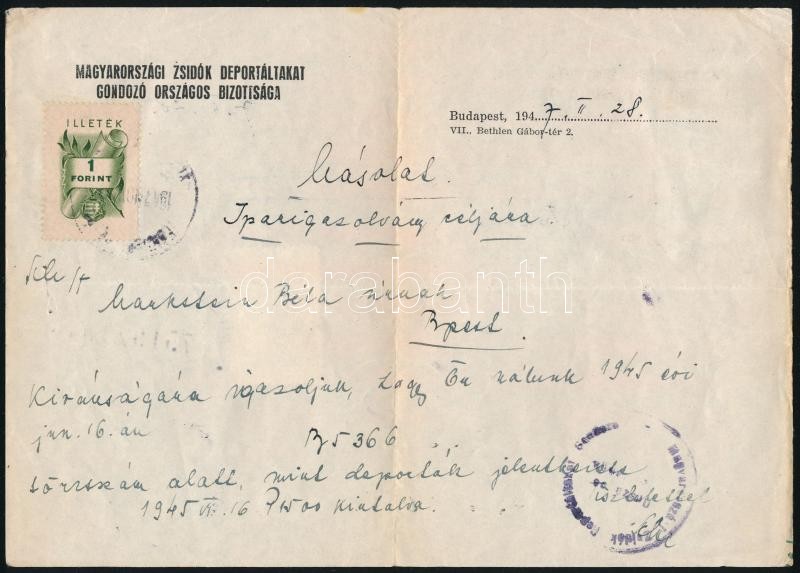 MAGYARORSZÁGI ZSIDÓK DEPORTÁLTAKAT
GONDOZÓ ORSZÁGOS BIZOTTSÁGA
ILLETÉK
1
FORINT
Budapest, 1947. II. 28.
VII., Bethlen Gábor-tér 2.
Másolat.
Iparigazolvány céljára.
Markstein Béla úrnak
Bpest.
Kívánságára igazoljuk, hogy Ön nálunk 1945 évi
jun. 16.-án
B 5366
törzsszám alatt, mint deportált jelentkezett
1945 VI. 16 P 1500 kiutalva.
tisztelettel
darabanth